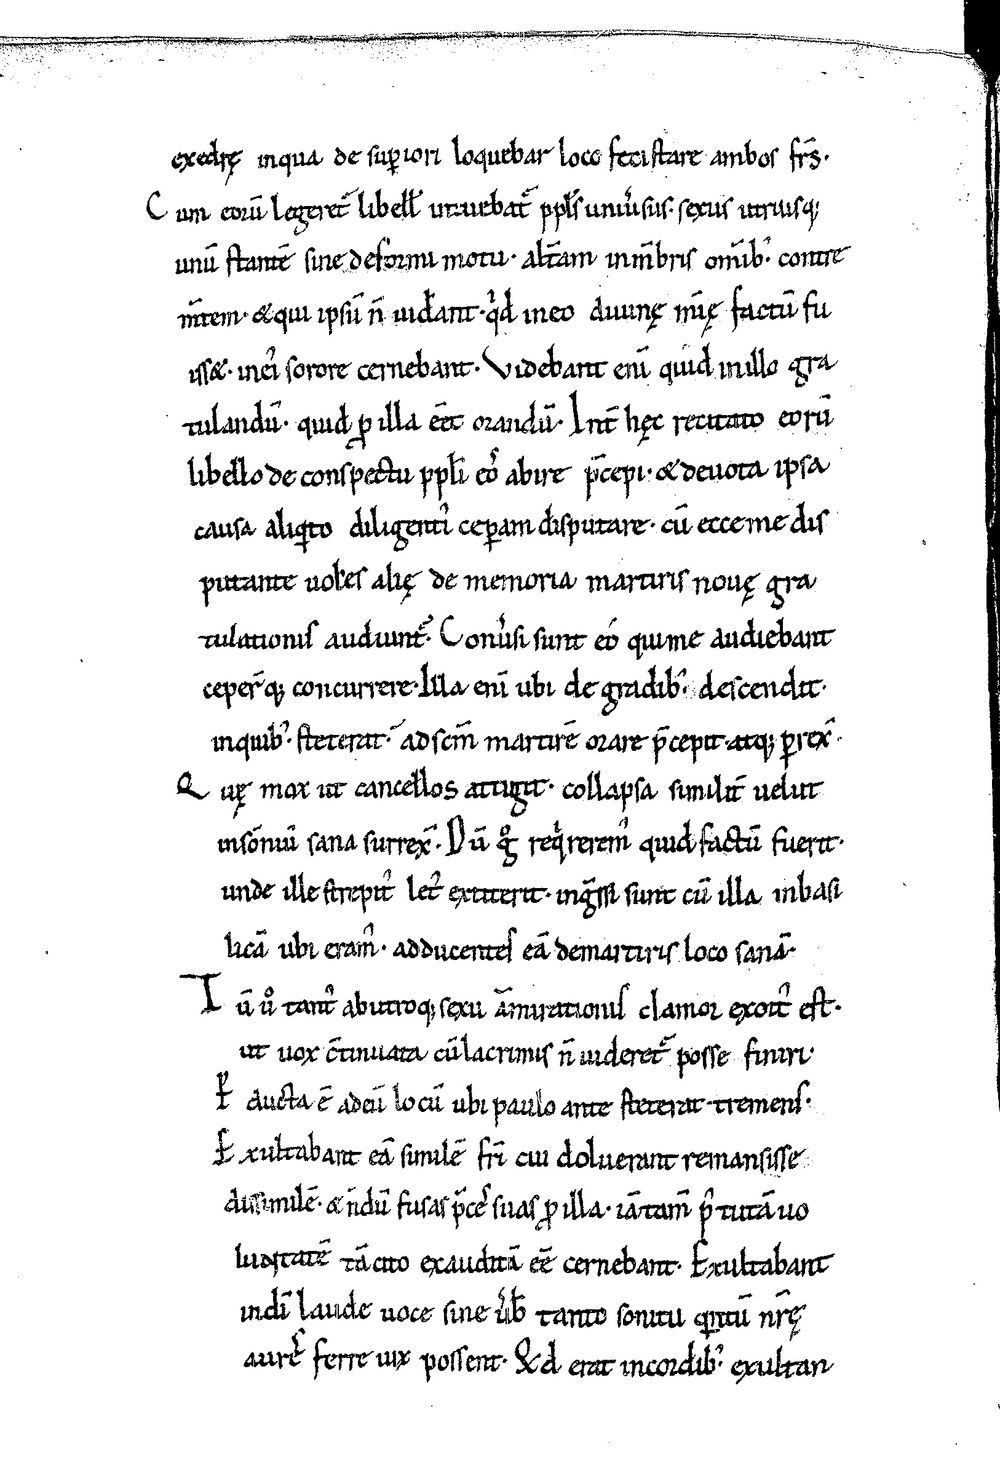 exedrę inqua de supiori loquebar loco feci stare ambos fr̄s.
Cum eorū legeret᷒ libell' intuebat᷒ ppl's uniūsus. sexus utriusq;
unū stantē sine deformi motu. alt̄am inm̄bris om̄ib; contre
m̄tem. & qui ipsū n̄ uid̄ant. qd ineo diuinę m̄ię factū fu
iss&. inei᷒ sorore cernebant. Videbant enī quid inillo gra
tulandū. quid ꝑ illa eēt orandū. Int̄ hęc recitato eorū
libello de conspectu ppli eos abire p̄cepi. & de tota ipsa
causa aliqto diligenti᷒ ceperam disputare. cū ecce me dis
putante uoces alię de memoria martiris nouę gra
tulationis audiunt᷒. Conuersi sunt eo qui me audiebant
ceper̄q; concurrere. Illa enī ubi de gradib; descendit.
inquib; steterat. ad sc̄m martirē orare p̄cepit atq; ꝑrex̄.
Quę mox ut cancellos attigit. collapsa similit̄ uelut
insōnuū sana surrex̄. Dū g° reqrerem᷒ quid factū fuerit.
unde ille strepit᷒ let᷒ extiterit. ingssi sunt cū illa inbasi
licā ubi eram᷒. adducentes eā demartiris loco sanā.
Tū ů tant᷒ abutroq; sexu āmirationis clamor exort᷒ est.
ut uox c̄tinuata cū lacrimis n̄ uideret᷒ posse finiri.
P ducta ē adeū locū ubi paulo ante steterat tremens.
Exultabant eā similē fr̄i cui doluerant remansisse
dissimilē. & n̄dū fusas p̄ces suas ꝑ illa. iā tam̄ p̄uiā uo
luntatē tā cito exauditā eē cernebant. Exultabant
indi laude uoce sine ūb tanto sonitu qntū nr̄ę
aurę ferre uix possent. Qd erat incordib; exultan